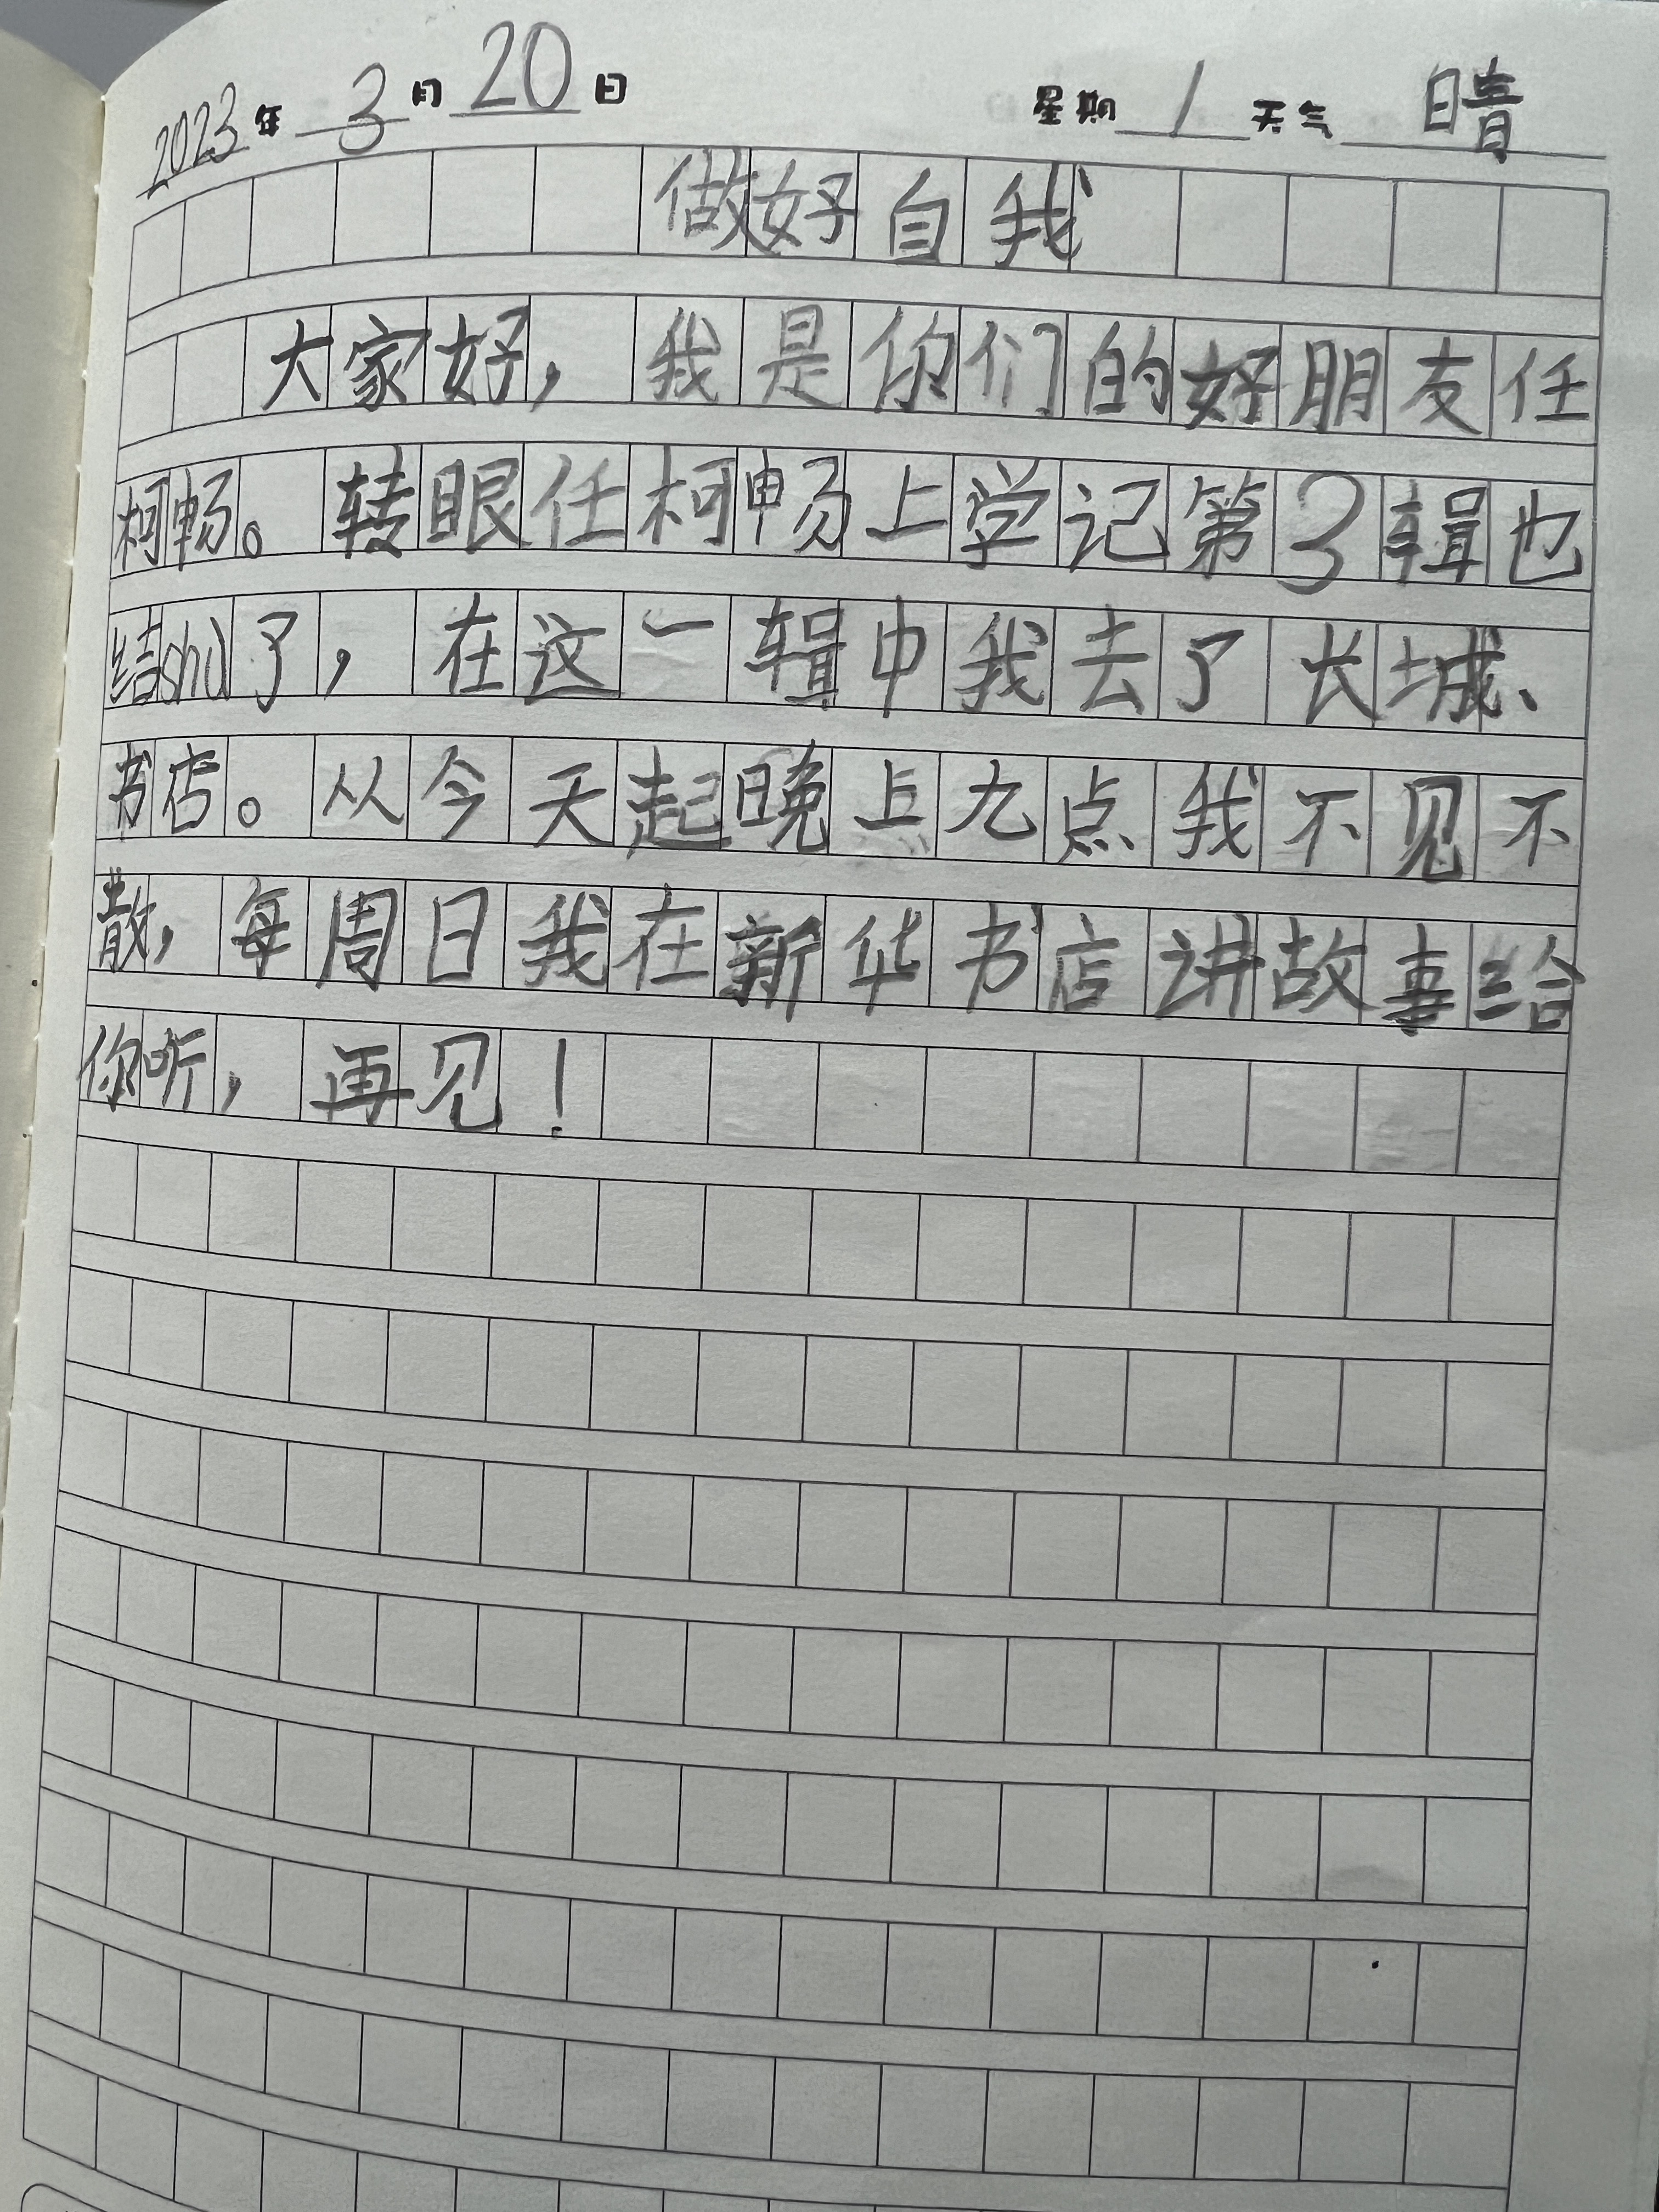 2023年 3月 20日 星期 1 天气 晴
做好自我
大家好，我是你们的好朋友任
柯畅。转眼任柯畅上学记第3辑也
结shu了，在这一辑中我去了长城、
书店。从今天起晚上九点我不见不
散，每周日我在新华书店讲故事给
你听，再见！